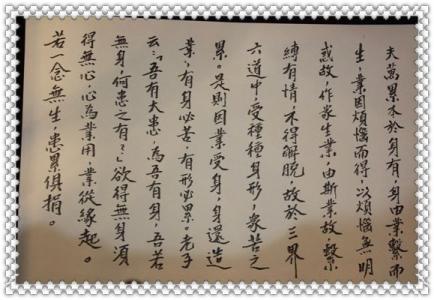 夫萬累本於身有，身由業繫而
生，業因煩惱而得，以煩惱無明
惑故，作家生業，由斯業故，繫
縛有情，不得解脫，故於三界
六道中，受種種身形，衆苦之
累。是則因業受身，身還造
業，有身必苦，有形必累。老子
云：「吾有大患，為吾有身，吾若
無身，何患之有？」欲得無身須
得無心，心為業用，業從緣起。
若一念無生，患累俱捐。